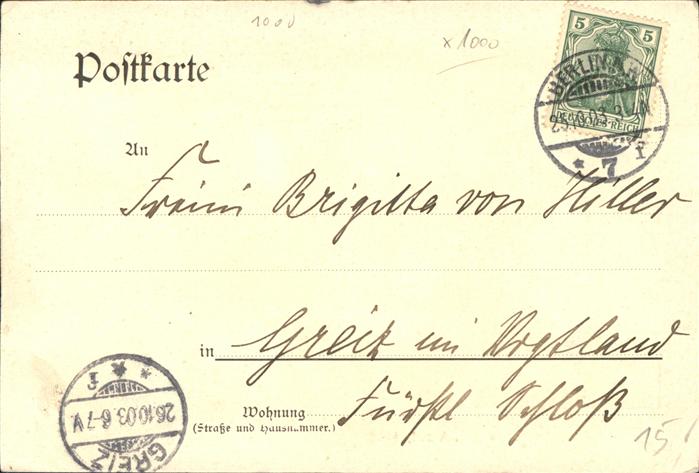 1000
x 1000
5 5
DEUTSCHES REICH
BERLIN N.W.
* 7 f
Postkarte
An
Freiin Brigitta von Hiller
in Greiz im Vogtland
Wohnung Fürstl Schloß
(Straße und Hausnummer.)
GREIZ
26.10.03. 6-7V
* * f
15